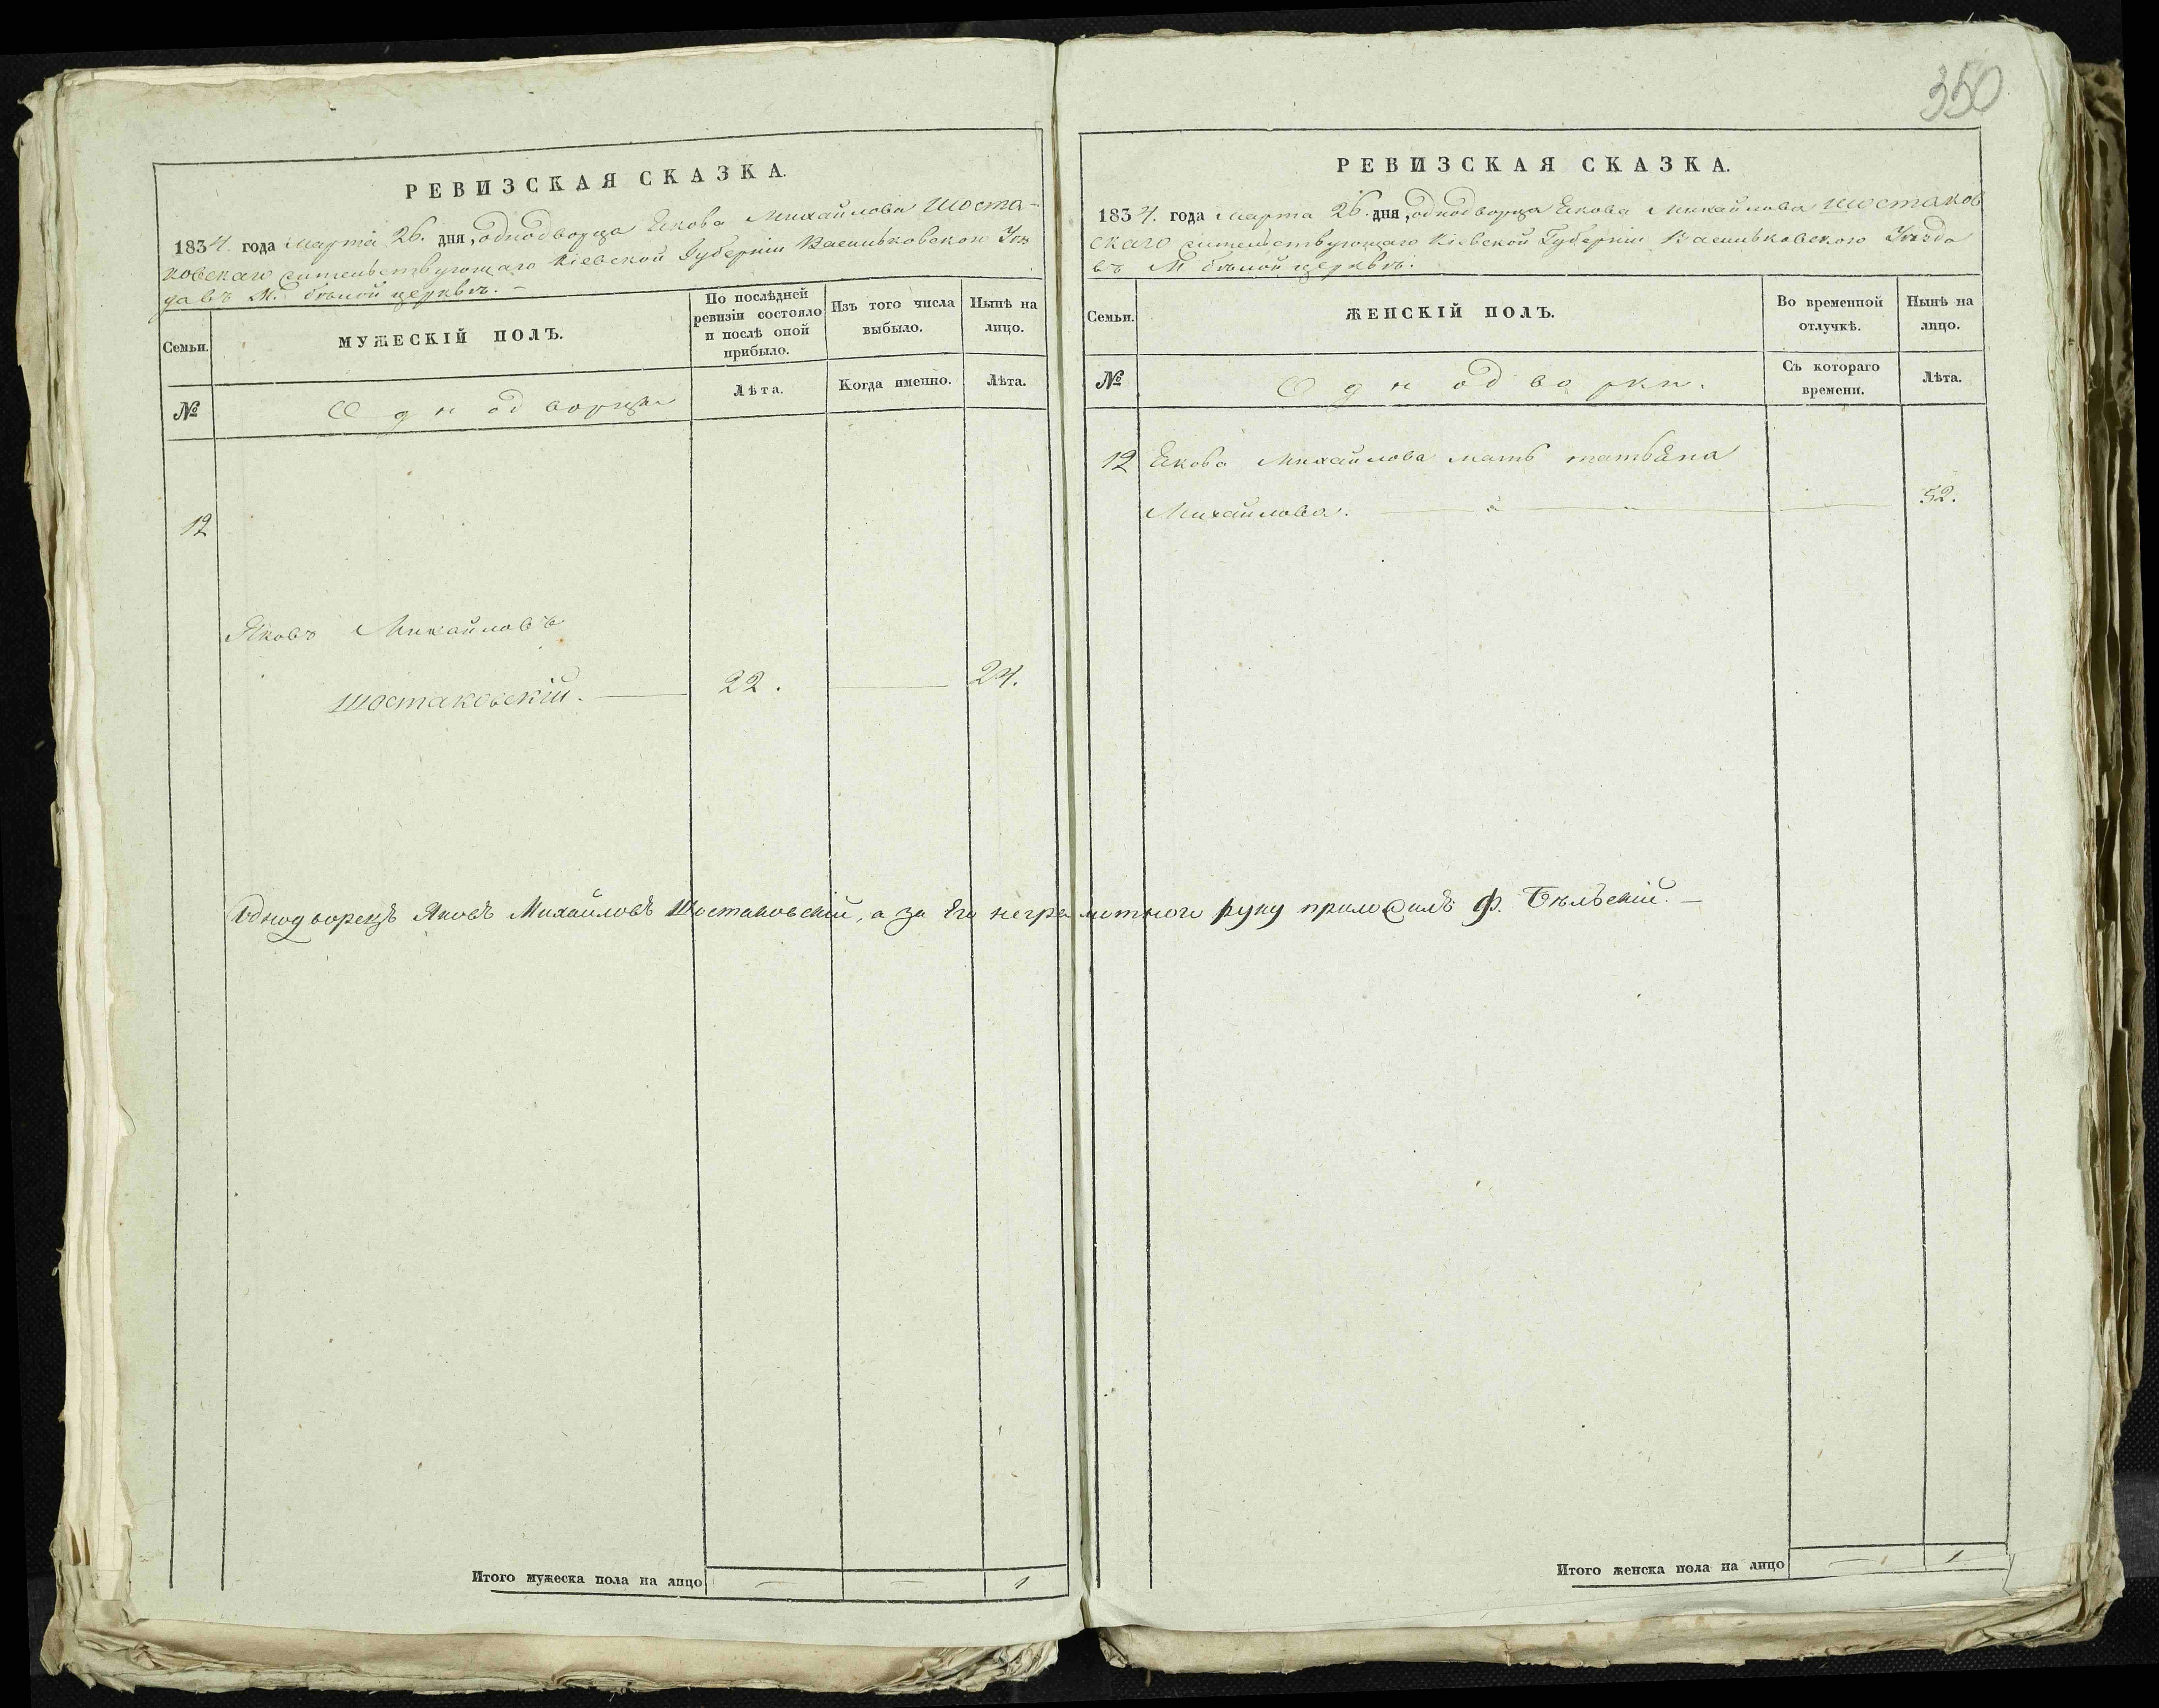 РЕВИЗСКАЯ СКАЗКА.
1834. года Марта 26. дня, однодворца Якова Михайлова Шоста-
ковскаго жительствующаго Кіевской Губерніи Васильковскои Уѣз
да въ М. бѣлой церквѣ. -
Семьи.
МУЖЕСКІЙ ПОЛЪ.
По послѣдней ревизіи состояло и послѣ оной прибыло.
Изъ того числа выбыло.
Нынѣ на лицо.
№
Однодворцы
Лѣта.
Когда именно.
Лѣта.
12
Яковъ Михайловъ
Шостаковскій. — 22. — 24.
Однодворецъ Яковъ Михайловъ Шостаковскій, а за его неграмотного руку приложилъ Ф. Бѣлѣскій. —
Итого мужеска пола на лицо — 1
350
РЕВИЗСКАЯ СКАЗКА.
1834. года Марта 26. дня, однодворца Якова Михайлова Шостаков
скаго жительствующаго Кіевской Губерніи Васильковского Уѣзда
въ М бѣлой церквѣ.
Семьи.
ЖЕНСКІЙ ПОЛЪ.
Во временной отлучкѣ.
Нынѣ на лицо.
№
Однодворки.
Съ котораго времени.
Лѣта.
12 Якова Михайлова мать татьяна
Михайлова. — 52.
Итого женска пола на лицо — 1